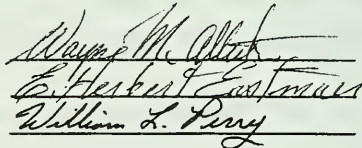 Wayne M. Albert
E. Herbert Eastman
William L. Perry